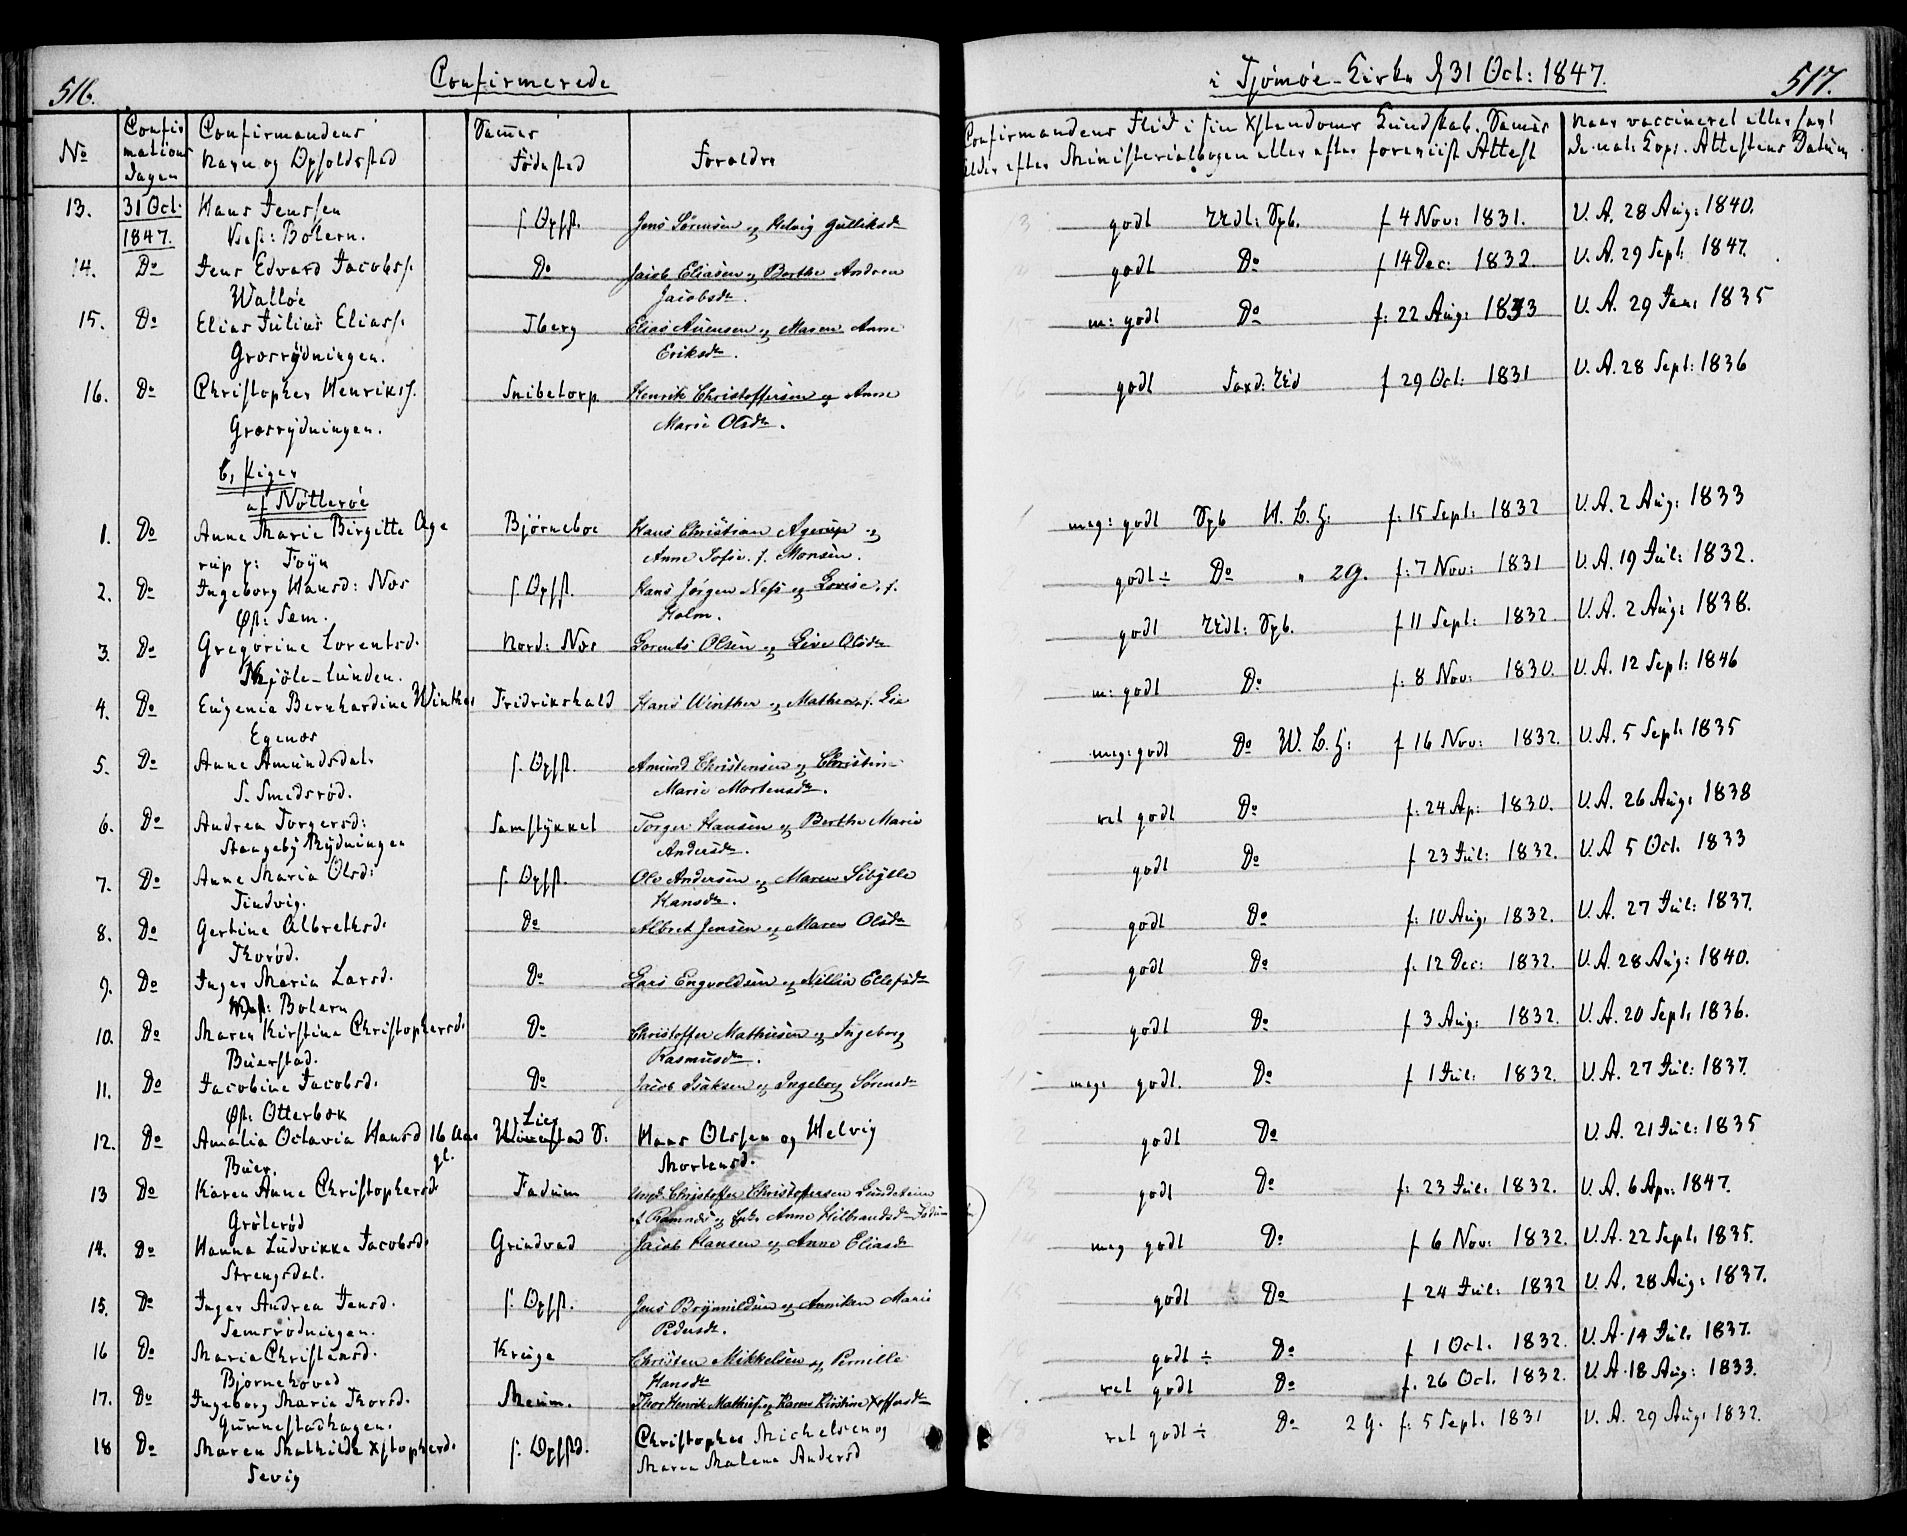 516.
Confirmerede
No
Confir
mations
Dagen
Confirmandens
Navn og Opholdsstad
Sammes
Fødested
Forældre
13. 31 Oct. Hans Jenssen f. Opst. Jens Sørensen og Helvig Gulliksdr
1847. Vest: Bolern.
14. Do Jens Edvard Jacobss. Do Jacob Eliasen og Berthe Andrea
Walløe Jacobsdr.
15. Do Elias Julius Eliass. Tberg Elias Auensen og Maren Anne
Grosrydningen. Eriksdr.
16. Do Christopher Henrikss. Snibetorp Henrik Christoffersen og Anne
Grosrydningen. Marie Olsdr.
b, Piger
af Nøtterøe
1. Do Anne Marie Birgitte Age Bjørneboe Hans Christian Agerup og
rup p: Foyn Anne Sofie f. Monsen.
2. Do Ingeborg Hansd: Næs f. Opst. Hans Jørgen Ness og Lovise f.
Øst: Sem. Holm.
3. Do Gregorine Lorentsd. Nord: Næs Lorents Olsen og Live Olsdr
Kjøle-lunden.
4. Do Eugenia Bernhardine Winther Fridrikshald Hans Winther og Mathea f. Lie
Egenæs
5. Do Anne Amundsdal. f. Opst. Amund Christensen og Christine
S. Smedsrød. Marie Mortensdr.
6. Do Andrea Torgersd: Samstykket Torger Hansen og Berthe Marie
Stangeby Rydningen Andersdr.
7. Do Anne Maria Olsd: f. Opst. Ole Andersen og Maren Sibylle
Tindvig. Hansdr.
8. Do Gertine Albretsd. Do Albret Jensen og Maren Olsdr
Thorød.
9. Do Inger Maria Larsd. Do Lars Engvoldsen og Nillia Ellefsdr
Vest: Bolern
10. Do Maren Kirstine Christophersd. Do Christoffer Mathiesen og Ingeborg
Buerstad. Rasmusdr.
11. Do Jacobine Jacobsd. Do Jacob Isaksen og Ingeborg Sørensdr
Øst: Otterbæk
12. Do Amalia Octavia Hansd 16 Aar Lies S. Hans Olssen og Helvig
Buer. gl. Mortensd.
13 Do Karen Anne Christophersd. Fadum Ungk. Christoffer Christoffersen
Grøterød af Ramnes og Anne Hilbrandsdr
14. Do Hanna Ludvikke Jacobsd. Grindvad Jacob Hansen og Anne Eliasdr
Strengsdal.
15. Do Inger Andrea Jensd. f. Opst. Jens Brynnildsen og Anniken Marie
Semsrødningen. Pedersdr.
16 Do Maria Christensd. Kruge Christen Mikkelsen og Pernille
Bjørnehoved Hansdr
17. Do Ingeborg Maria Thorsd. Meum. Thor Henrik Mathies. og Karen Kirstine Xstoffersdr
Gunnestadhagen.
18 Do Maren Mathilde Xstophersd. f. Opstd. Christopher Michelsen og
Sevig Maren Malena Andersd
i Tjømøe Kirke d. 31 Oct: 1847.
517.
Confirmandens Flid i sin Xstendoms Kundskab. Sammes
Alder efter Ministerialbogen eller efter foreviist Attest
Naar vaccineret eller havt
de nat: Kopr. Attestens Datum
godt Udt: Spb. f 4 Nov: 1831. V. A. 28 Aug: 1840.
godt Do f 14 Dec: 1832. V. A. 29 Sept: 1847.
m: godt Do f: 22 Aug: 1833 V. A. 29 Jan: 1835
godt f 29 Oct: 1831 V. A. 28 Sept: 1836
1 meg: godt Spb H. B. H: f: 15 Sept: 1832 V. A. 2 Aug: 1833
godt ÷ Do " 2G. f: 7 Nov: 1831 V. A. 19 Jul: 1832.
godt Udt: Spb. f 11 Sept: 1832. V. A. 2 Aug: 1838.
m: godt Do f: 8 Nov: 1830. V. A. 12 Sept: 1846
meg: godt Do f 16 Nov: 1832. V. A. 5 Sept. 1835
ret godt Do f: 24 Ap: 1830. V. A. 26 Aug: 1838
godt Do f 23 Jul: 1832. V. A 5 Oct. 1833
godt Do f: 10 Aug. 1832. V. A. 27 Jul: 1837.
godt Do f. 12 Dec: 1832. V. A. 28 Aug: 1840.
godt Do f 3 Aug: 1832. V. A. 20 Sept. 1836.
meg: godt. Do f 1 Jul: 1832. V. A. 27 Jul: 1837.
godt Do V. A. 21 Jul: 1835
godt Do f: 23 Jul. 1832. V. A. 6 Apr: 1847.
meg godt Do f 6 Nov: 1832. V. A. 22 Sept. 1835.
godt Do f 24 Jul: 1832 V. A. 28 Aug: 1837.
godt ÷ Do f 1 Oct. 1832. V. A. 14 Jul. 1837.
ret godt Do f. 26 Oct. 1832. V. A. 18 Aug: 1833.
ret godt ÷ Do 2 G. f: 5 Sept. 1831 V. A. 29 Aug: 1832.